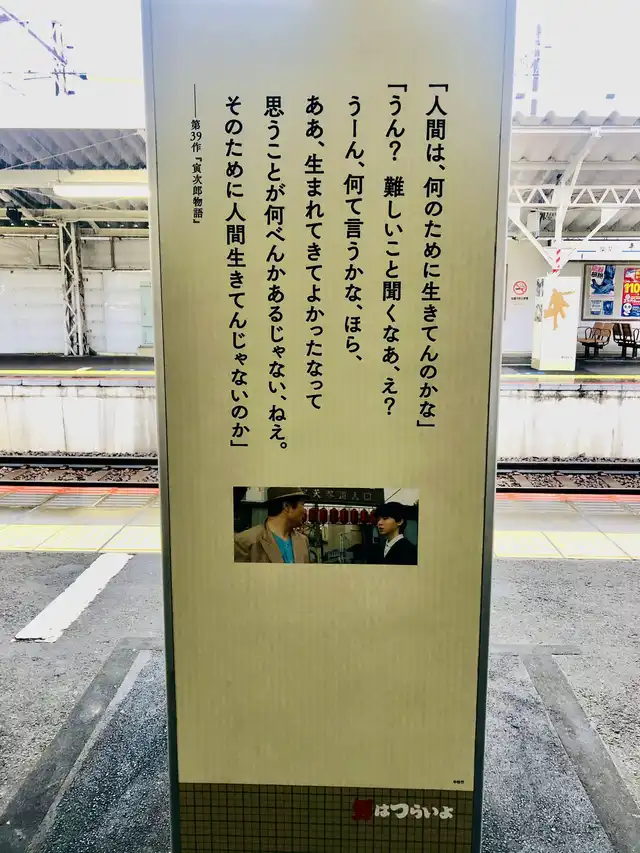 「人間は、何のために生きてんのかな」
「うん？　難しいこと聞くなあ、え？
うーん、何て言うかな、ほら、
ああ、生まれてきてよかったなって
思うことが何べんかあるじゃない、ねえ。
そのために人間生きてんじゃないのか」
――第39作『寅次郎物語』
男はつらいよ